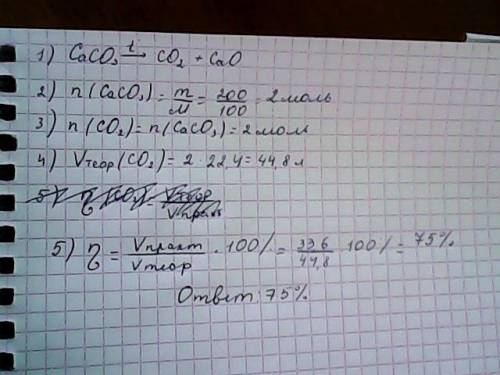 1) CaCO₃ –t→ CO₂ + CaO
2) n (CaCO₃) = m/M = 200/100 = 2 моль
3) n (CO₂) = n (CaCO₃) = 2 моль
4) Vтеор (CO₂) = 2 · 22,4 = 44,8 л
5) η = Vпракт/Vтеор · 100% = 33,6/44,8 · 100% = 75%
Ответ: 75%